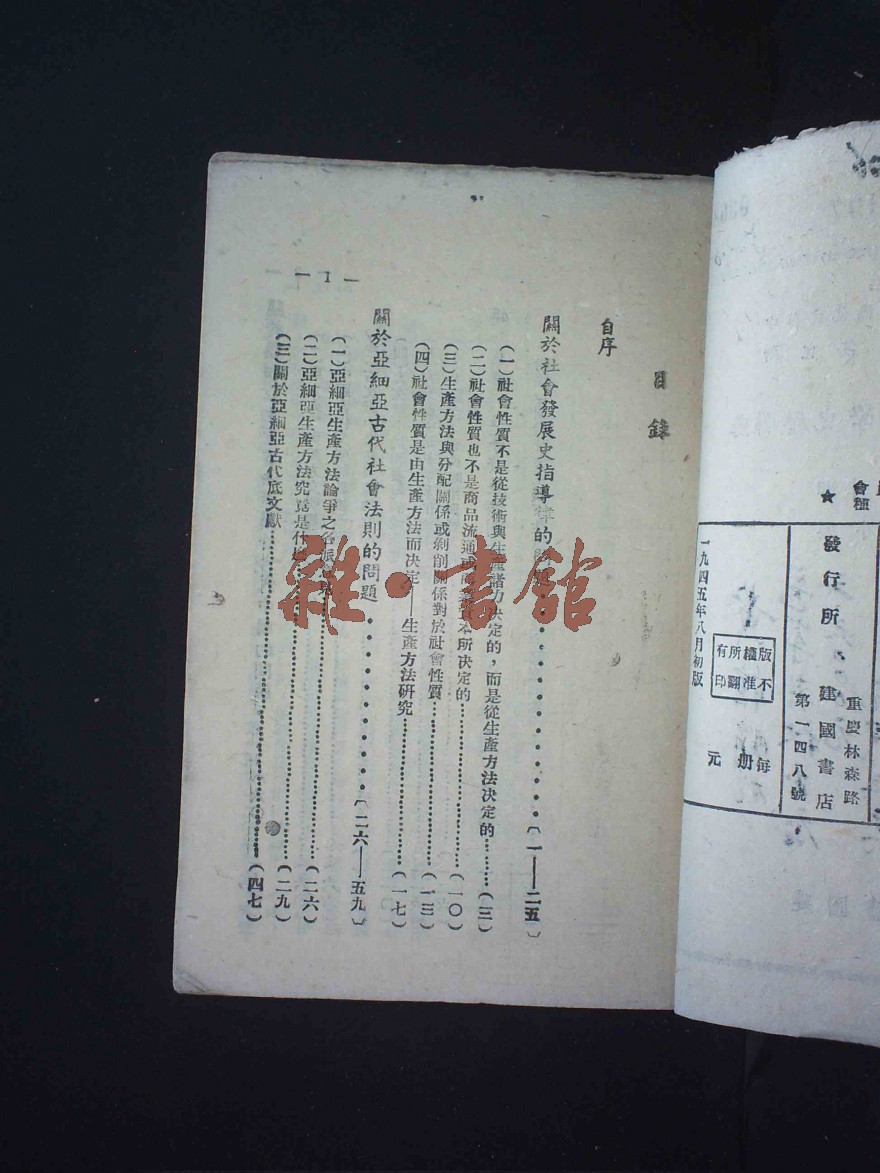 目錄
自序
關於社會發展史指導律的問題〔一——二五〕
(一)社會性質不是從技術與生產諸力決定的,而是從生產方法決定的(三)
(二)社會性質也不是商品流通或商業資本所決定的(一〇)
(三)生產方法與分配關係或剝削關係對於社會性質(一三)
(四)社會性質是由生產方法而決定——生產方法研究(一七)
關於亞細亞古代社會法則的問題〔二六——五九〕
(一)亞細亞生產方法論爭之各派(二六)
(二)亞細亞生產方法究竟是什(二九)
(三)關於亞細亞古代底文獻(四七)
— 1 —
雜·書館
會種
★
重慶林森路
發行所 建國書店
第一四八號
版權所有
不准翻印
每册 元
一九四五年八月初版